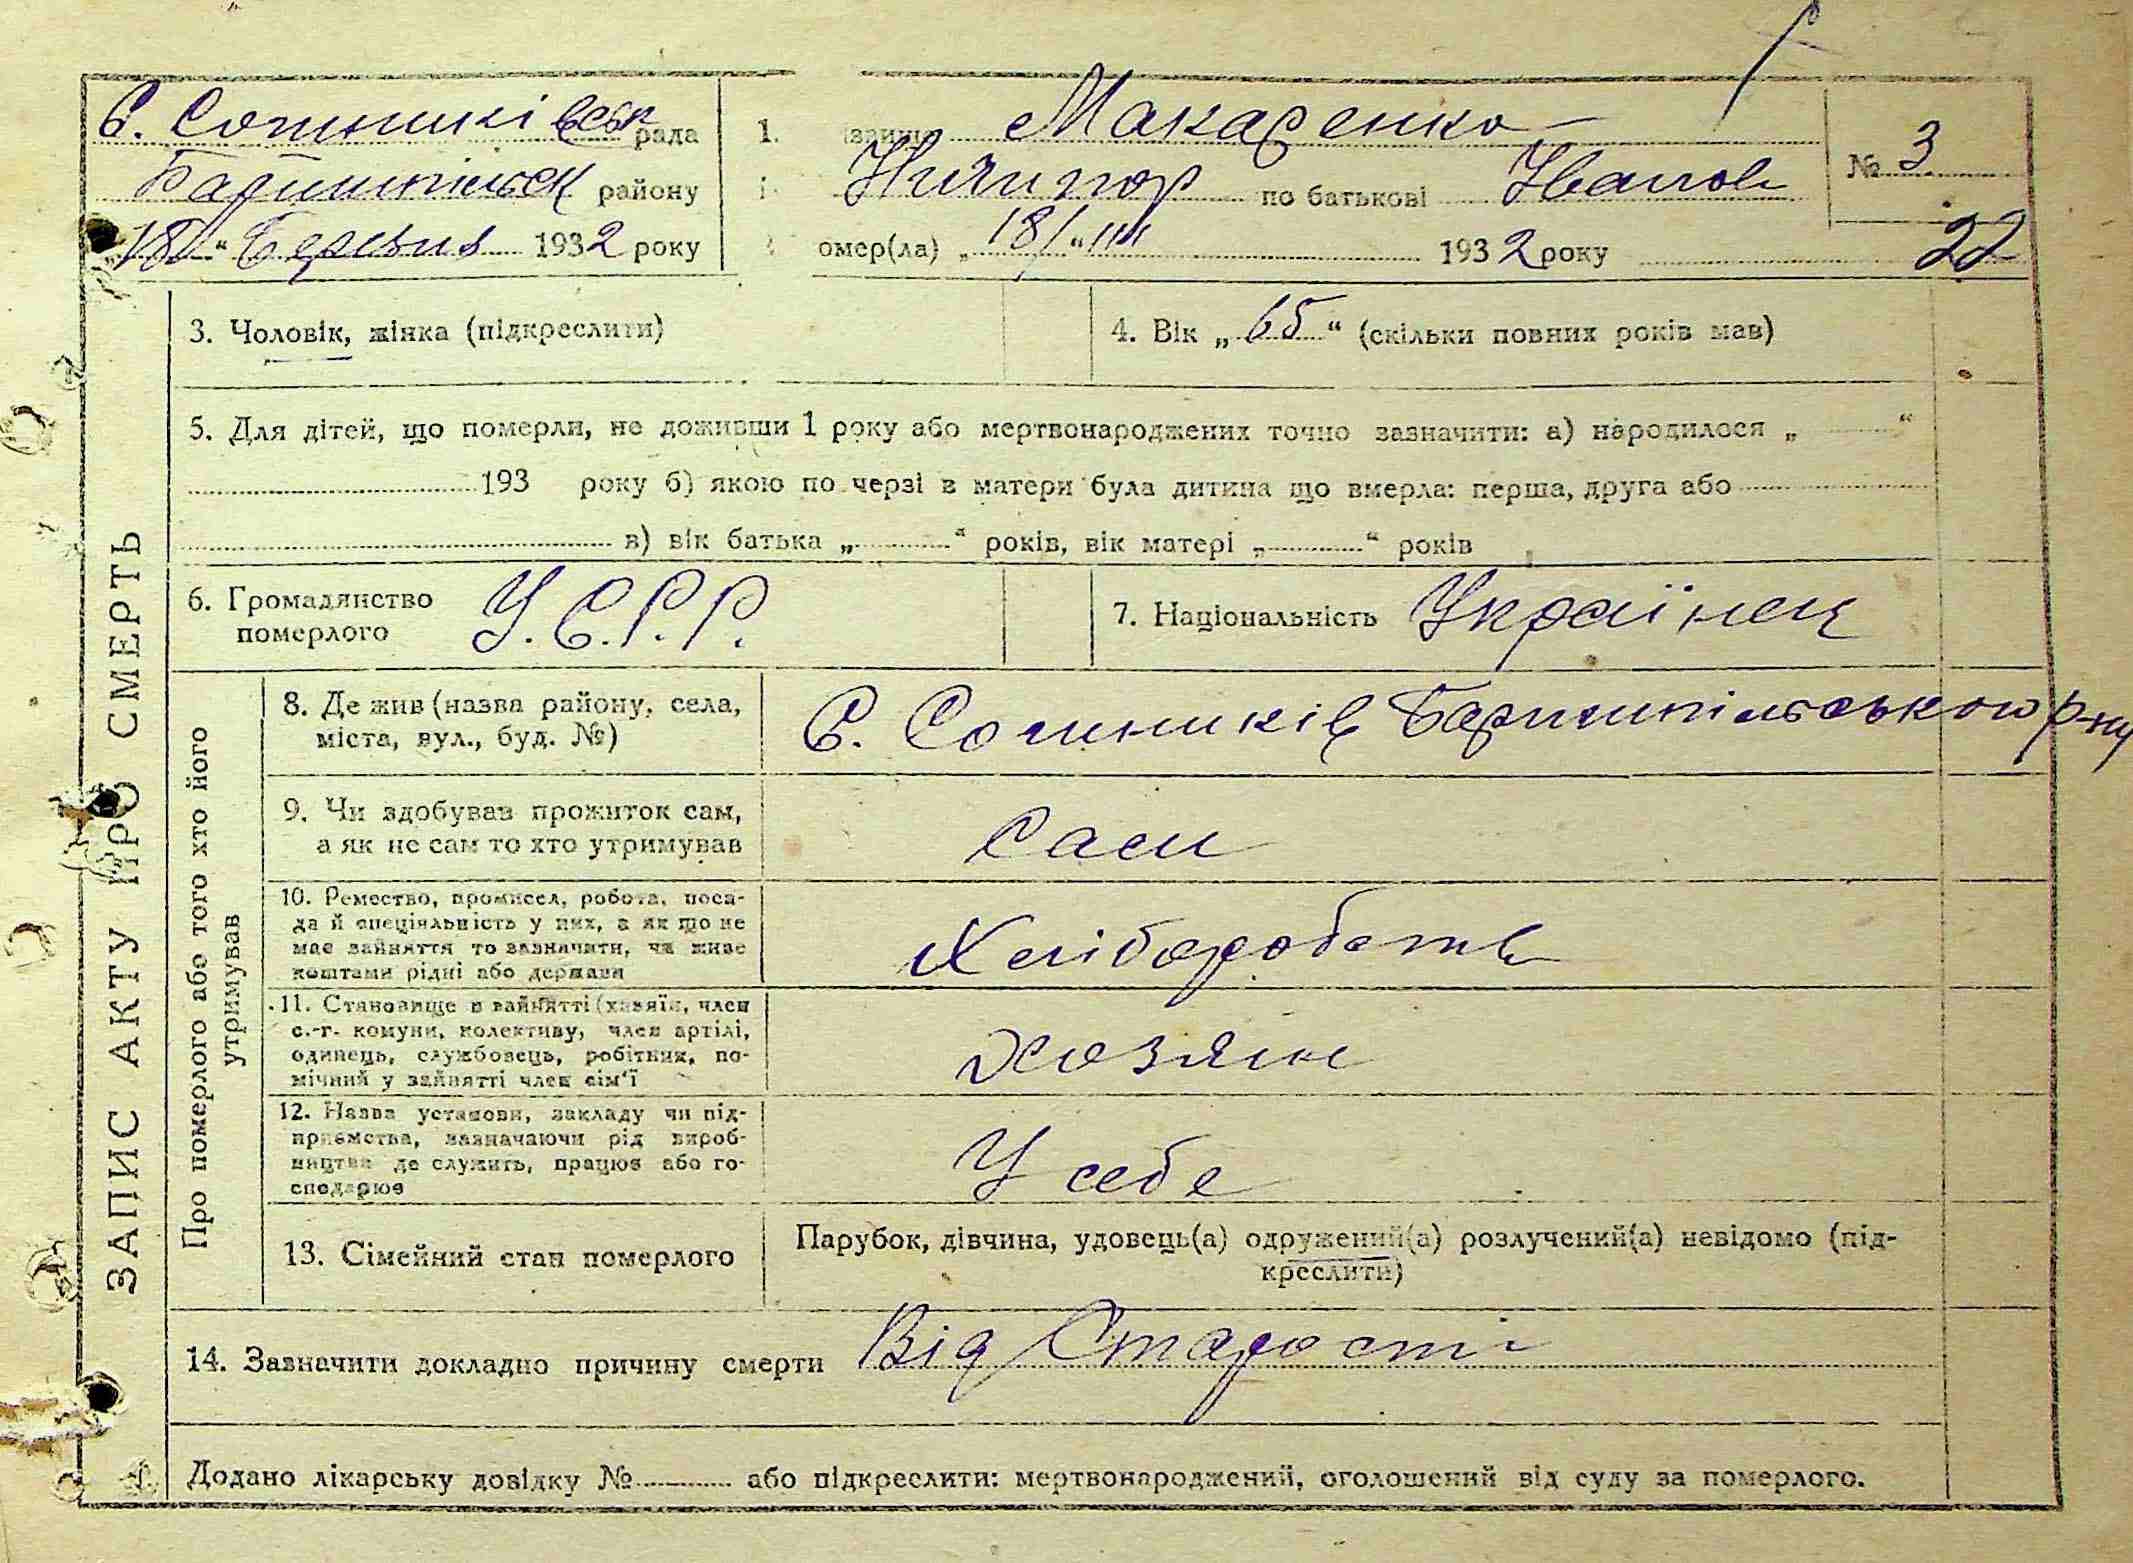 С. Сотниківськ рада
Баришпільськ району
"18" Березня 1932 року
1. Макаренко
Ничипор по батькові Іванов
омер(ла) „18/"III 1932 року
№ 3
22
ЗАПИС АКТУ ПРО СМЕРТЬ
3. Чоловік, жінка (підкреслити)
4. Вік „65" (скільки повних років мав)
5. Для дітей, що померли, не доживши 1 року або мертвонароджених точно зазначити: а) народилося „ "
193 року б) якою по черзі в матери була дитина що вмерла: перша, друга або
в) вік батька „ " років, вік матері „ " років
6. Громадянство
померлого
У.С.Р.Р.
7. Національність Українец
Про померлого або того хто його
утримував
8. Де жив (назва району, села,
міста, вул., буд. №)
С. Сотників Баришпільського р-ну
9. Чи здобував прожиток сам,
а як не сам то хто утримував
Сам
10. Ремество, промисел, робота, поса-
да й спеціяльність у них, а як що не
має зайняття то зазначити, чи живе
коштами рідні або держави
Хліборобств
11. Становище в зайнятті (хазяїн, член
с.-г. комуни, колективу, член артілі,
одинець, службовець, робітник, по-
мічний у зайнятті член сім'ї
Хозяин
12. Назва установи, закладу чи під-
приємства, зазначаючи рід вироб-
ництва де служить, працює або го-
сподарює
У себе
13. Сімейний стан померлого
Парубок, дівчина, удовець(а) одружений(а) розлучений(а) невідомо (під-
креслити)
14. Зазначити докладно причину смерти Від Старости
Додано лікарську довідку № або підкреслити: мертвонароджений, оголошений від суду за померлого.